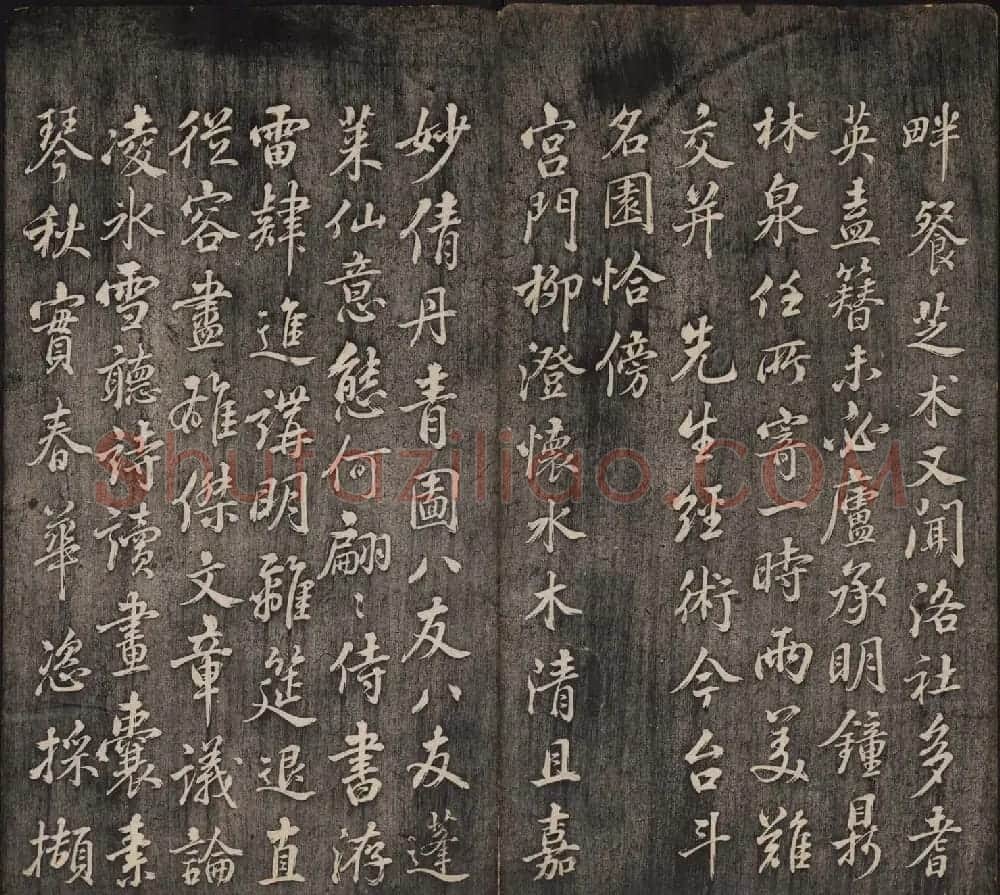 畔餐芝术又聞洛社多耆
英盍簪未必廬承明鐘鼎
林泉任所寄一時兩美難
交并 先生經術今台斗
名園恰傍
宮門柳澄懷水木清且嘉
妙倩丹青圖八友八友蓬
萊仙意態何翩〻侍書游
雷肆進講明離筵退直
從容盡雄傑文章議論
凌氷雪聽詩讀畫囊素
琴秋實春華恣採擷
Shufaziliao.COM